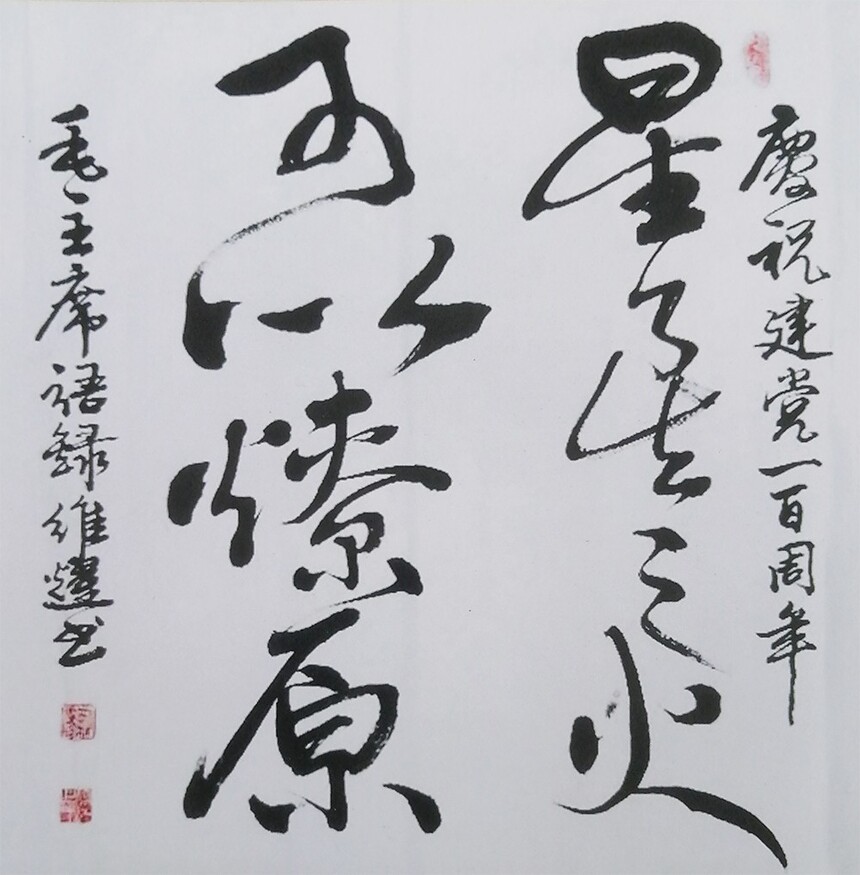 慶祝建党一百周年
星星之火
可以燎原
毛主席語録維燿书